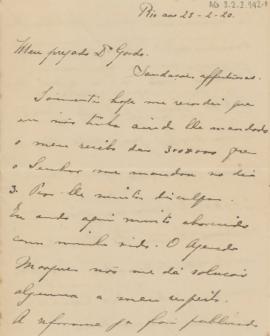 AG 3.2.2.142-1
Rio aos 23-2-20.
Meu prezado Dr Gordo.
Saudações affectuosas.
Somente hoje me recordei que
eu não tinha ainda lhe mandado
o meu recibo das 300$000 que
o Senhor me mandou no dia
3. Peço lhe muitas disculpas.
Eu ando aqui muito aborrecido
com minha vida. O Agenor
Marques não me dá solução
alguma a meu respeito.
A reforma já foi publicada